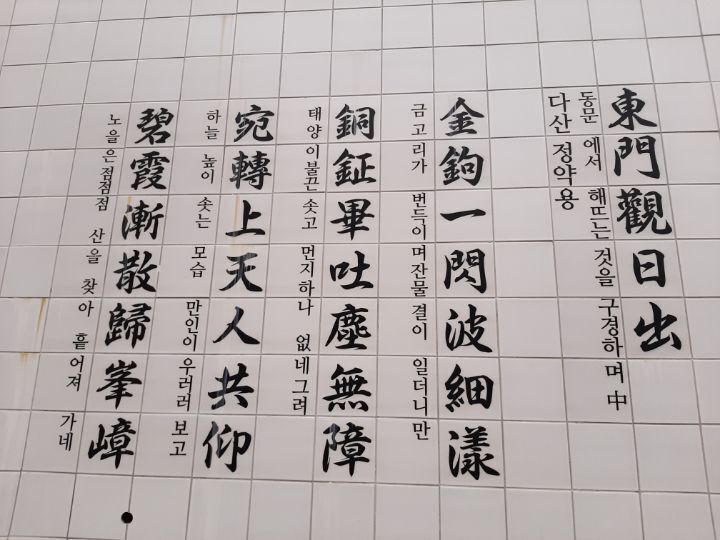 東門觀日出
동문에서 해뜨는 것을 구경하며 中
다산 정약용
金鉤一閃波細漾
금고리가 번득이며잔물결이 일더니만
銅鉦畢吐塵無障
태양이불끈 솟고 먼지하나 없네그려
宛轉上天人共仰
하늘 높이 솟는 모습 만인이 우러러 보고
碧霞漸散歸峯嶂
노을은점점점 산을 찾아 흩어져 가네